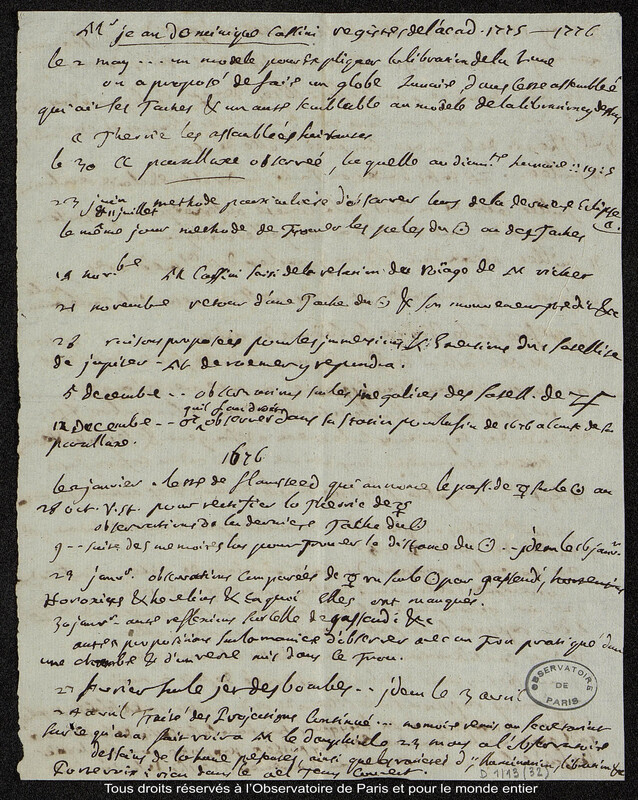 Mr jean dominique Cassini registres de l'acad. 1775 — 1776
le 2 may ... un modele pour expliquer la libration de la Lune
on a proposé de faire un globe Lunaire, dans cette assemblée
qui ait ses Taches & un autre semblable au modele de la libration
a Thevie les assemblées suivantes
le 30 parallaxe observée, laquelle au diam. Lunaire :: 19 : 5
23 juin methode particuliere d'observer lors de la derniere Eclipse
& 11 juillet
le même jour methode de Trouver les poles du ☉ au des Taches
14 novbre Mr Cassini de la relation du voiage de Mr richer
21 novembre retour d'une Tache du ☉ & son mouvement predit &c
28 raisons proposées pour les immersions & Emersions du satellite
de jupiter - Mr de roemer y repondra.
5 decembre -- observations sur les inegalités des satell. de ♃
12 decembre -- observer dans sa station pour la fin de 1676 a cause de sa
parallaxe.
1676
le 2 janvier lettre de flamsteed qui annonce le pass. de ☿ sur le ☉ au
28 oct. v. st. pour rectifier la Theorie de ☿
observations de la derniere Tache du ☉
9 -- suite des memoires lus pour Trouver la distance du ☉ -- jdem le 16 janvr.
29 janvr. observations comparées de ☿ vu sur le ☉ par gassendi,
Horoxius & hevelius & en quoi Elles ont manqués.
30 janvr. autres reflexions sur celle de gassendi &c
autres propositions sur la maniere d'observer avec un Trou pratiqué dans
une chambre & d'un verre mis dans ce Trou.
27 fevrier sur le jet des bombes -- jdem le 3 avril
24 avril Traité des Projections Continué ... memoire remis au secretariat
a Mr le dauphin le 23 mars a l'observatoire
desseins de la lune preparés, ainsi que
rien dans le ciel Tems Couvert
OBSERVATOIRE
DE
PARIS
D 1/13 (32)
Tous droits réservés à l'Observatoire de Paris et pour le monde entier